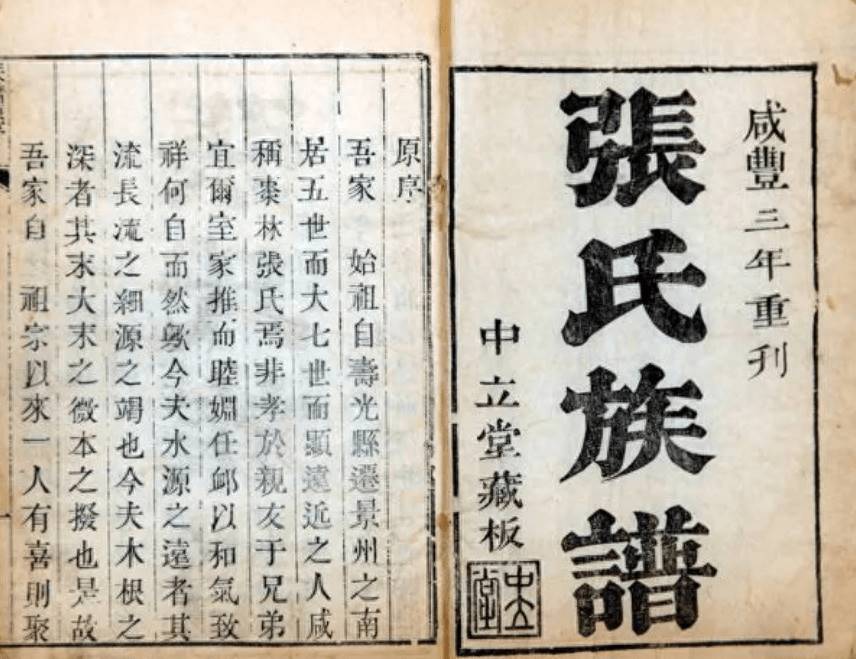 咸豐三年重刊
張氏族譜
中立堂藏板
中立堂
原序
吾家 始祖自壽光縣遷景州之南
居五世而大七世而顯遠近之人咸
稱棗林張氏焉非孝於親友于兄弟
宜爾室家推而睦婣任䘏以和氣致
祥何自而然歟今夫水源之遠者其
流長流之細源之竭也今夫木根之
深者其末大末之微本之撥也是故
吾家自 祖宗以來一人有喜則聚